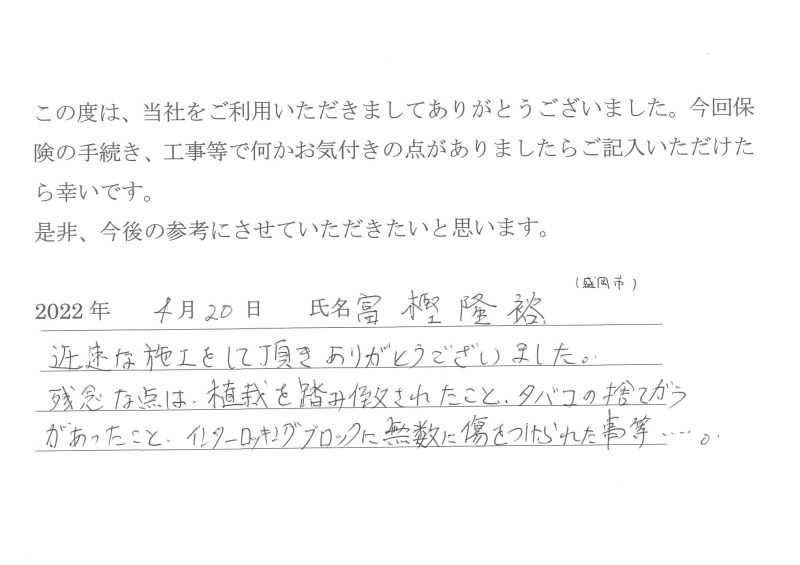 この度は、当社をご利用いただきましてありがとうございました。今回保
険の手続き、工事等で何かお気付きの点がありましたらご記入いただけた
ら幸いです。
是非、今後の参考にさせていただきたいと思います。
(盛岡市)
2022年 4月20日 氏名 富樫隆裕
迅速な施工をして頂きありがとうございました。
残念な点は、植栽を踏み倒されたこと、タバコの捨てがら
があったこと、インターロッキングブロックに無数に傷をつけられた事等……。